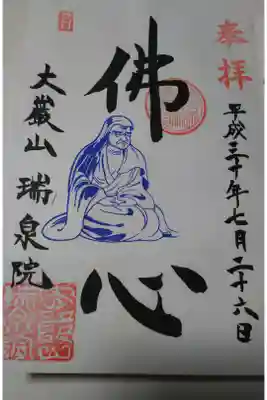 奉拝
平成三十年七月二十六日
佛心
大嚴山 瑞泉院